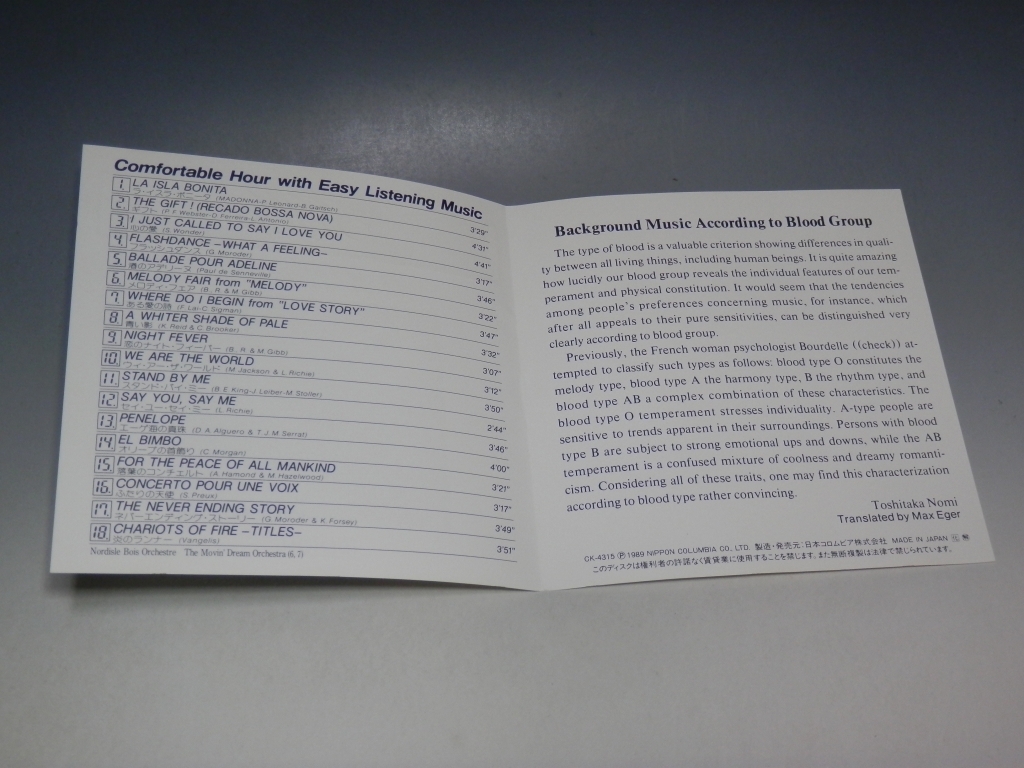 Comfortable Hour with Easy Listening Music
1. LA ISLA BONITA
ラ・イスラ・ボニータ (MADONNA-P. Leonard-B. Gaitsch) 3'29"
2. THE GIFT! (RECADO BOSSA NOVA)
ギフト (P. F. Webster-D. Ferreira-L. Antonio) 4'31"
3. I JUST CALLED TO SAY I LOVE YOU
心の愛 (S. Wonder) 4'41"
4. FLASHDANCE –WHAT A FEELING–
フラッシュダンス (G. Moroder) 3'17"
5. BALLADE POUR ADELINE
渚のアデリーヌ (Paul de Senneville) 3'46"
6. MELODY FAIR from "MELODY"
メロディ・フェア (B. R & M. Gibb) 3'22"
7. WHERE DO I BEGIN from "LOVE STORY"
ある愛の詩 (F. Lai-C. Sigman) 3'47"
8. A WHITER SHADE OF PALE
青い影 (K. Reid & C. Brooker) 3'32"
9. NIGHT FEVER
恋のナイト・フィーバー (B. R & M. Gibb) 3'07"
10. WE ARE THE WORLD
ウィ・アー・ザ・ワールド (M. Jackson & L. Richie) 3'12"
11. STAND BY ME
スタンド・バイ・ミー (B. E. King-J. Leiber-M. Stoller) 3'50"
12. SAY YOU, SAY ME
セイ・ユー・セイ・ミー (L. Richie) 2'44"
13. PENELOPE
エーゲ海の真珠 (D. A. Alguero & T. J. M. Serrat) 3'46"
14. EL BIMBO
オリーブの首飾り (C. Morgan) 4'00"
15. FOR THE PEACE OF ALL MANKIND
落葉のコンチェルト (A. Hamond & M. Hazelwood) 3'21"
16. CONCERTO POUR UNE VOIX
ふたりの天使 (S. Preux) 3'17"
17. THE NEVER ENDING STORY
ネバーエンディング・ストーリー (G. Moroder & K. Forsey) 3'49"
18. CHARIOTS OF FIRE –TITLES–
炎のランナー (Vangelis) 3'51"
Nordisle Bois Orchestre The Movin' Dream Orchestra (6, 7)
Background Music According to Blood Group
The type of blood is a valuable criterion showing differences in quali-
ty between all living things, including human beings. It is quite amazing
how lucidly our blood group reveals the individual features of our tem-
perament and physical constitution. It would seem that the tendencies
among people's preferences concerning music, for instance, which
after all appeals to their pure sensitivities, can be distinguished very
clearly according to blood group.
Previously, the French woman psychologist Bourdelle ((check)) at-
tempted to classify such types as follows: blood type O constitutes the
melody type, blood type A the harmony type, B the rhythm type, and
blood type AB a complex combination of these characteristics. The
blood type O temperament stresses individuality. A-type people are
sensitive to trends apparent in their surroundings. Persons with blood
type B are subject to strong emotional ups and downs, while the AB
temperament is a confused mixture of coolness and dreamy romanti-
cism. Considering all of these traits, one may find this characterization
according to blood type rather convincing.
Toshitaka Nomi
Translated by Max Eger
CK-4315 Ⓟ 1989 NIPPON COLUMBIA CO., LTD. 製造・発売元：日本コロムビア株式会社 MADE IN JAPAN
このディスクは権利者の許諾なく賃貸業に使用することを禁じます。また無断複製は法律で禁じられています。